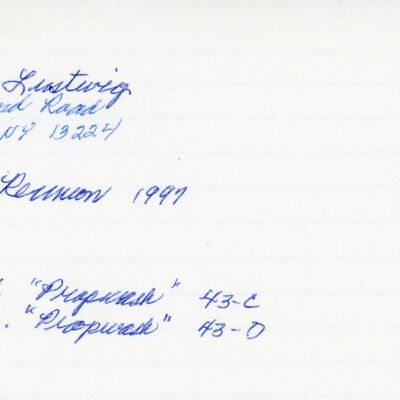 Lustwig
Road
NY 13224
Reunion 1997
. "Propwash" 43-C
. "Propwash" 43-D